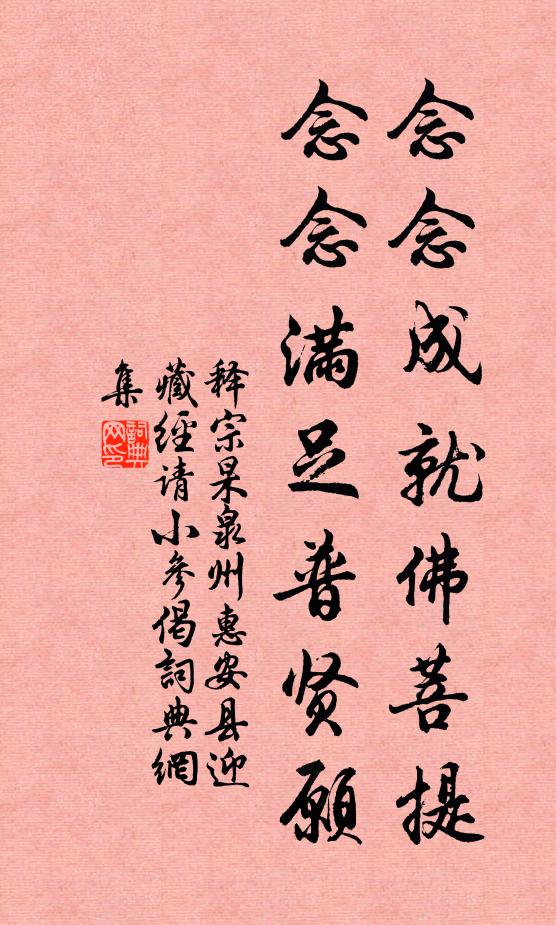 念念成就佛菩提
念念满足普贤愿
释宗杲泉州惠安县迎
藏经请小参偈詞典網
集
詞典
网印